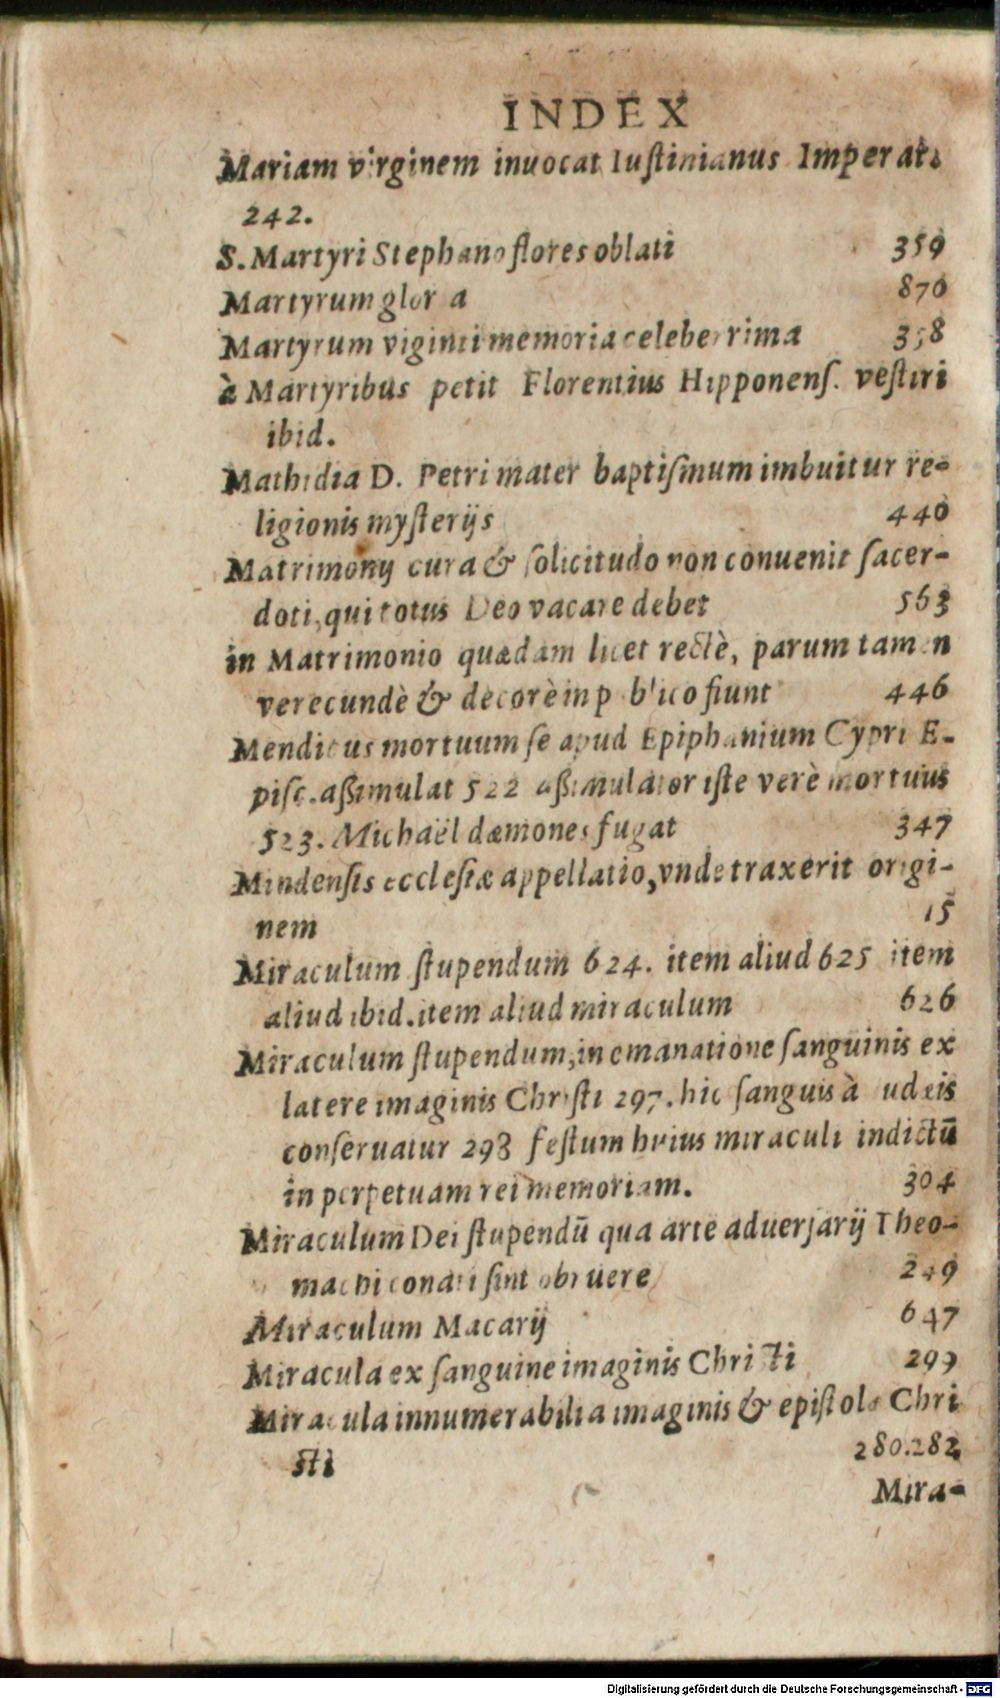 INDEX
Mariam virginem inuocat Iuſtinianus Imperat.
242.
S. Martyri Stephano flores oblati 359
Martyrum gloria 870
Martyrum viginti memoria celeberrima 358
à Martyribus petit Florentius Hipponenſ. veſtiri
ibid.
Mathidia D. Petri mater baptiſmum imbuitur re-
ligionis myſterijs 440
Matrimonij cura & ſolicitudo non conuenit ſacer-
doti, qui totus Deo vacare debet 563
in Matrimonio quædam licet rectè, parum tamen
verecundè & decorè in publico fiunt 446
Mendicus mortuum ſe apud Epiphanium Cypri E-
piſc. aßimulat 522 aßimulator iſte verè mortuus
523. Michaël dæmones fugat 347
Mindenſis eccleſiæ appellatio, vnde traxerit origi-
nem 15
Miraculum ſtupendum 624. item aliud 625 item
aliud ibid. item aliud miraculum 626
Miraculum ſtupendum, in emanatione ſanguinis ex
latere imaginis Chriſti 297. hic ſanguis à Iudæis
conſeruatur 298 feſtum huius miraculi indictū
in perpetuam rei memoriam. 304
Miraculum Dei ſtupendū qua arte aduerſarij Theo-
machi conati ſint obruere 249
Miraculum Macarij 647
Miracula ex ſanguine imaginis Chriſti 299
Miracula innumerabilia imaginis & epiſtolæ Chri
ſti 280.282
Mira-
Digitalisierung gefördert durch die Deutsche Forschungsgemeinschaft - DFG